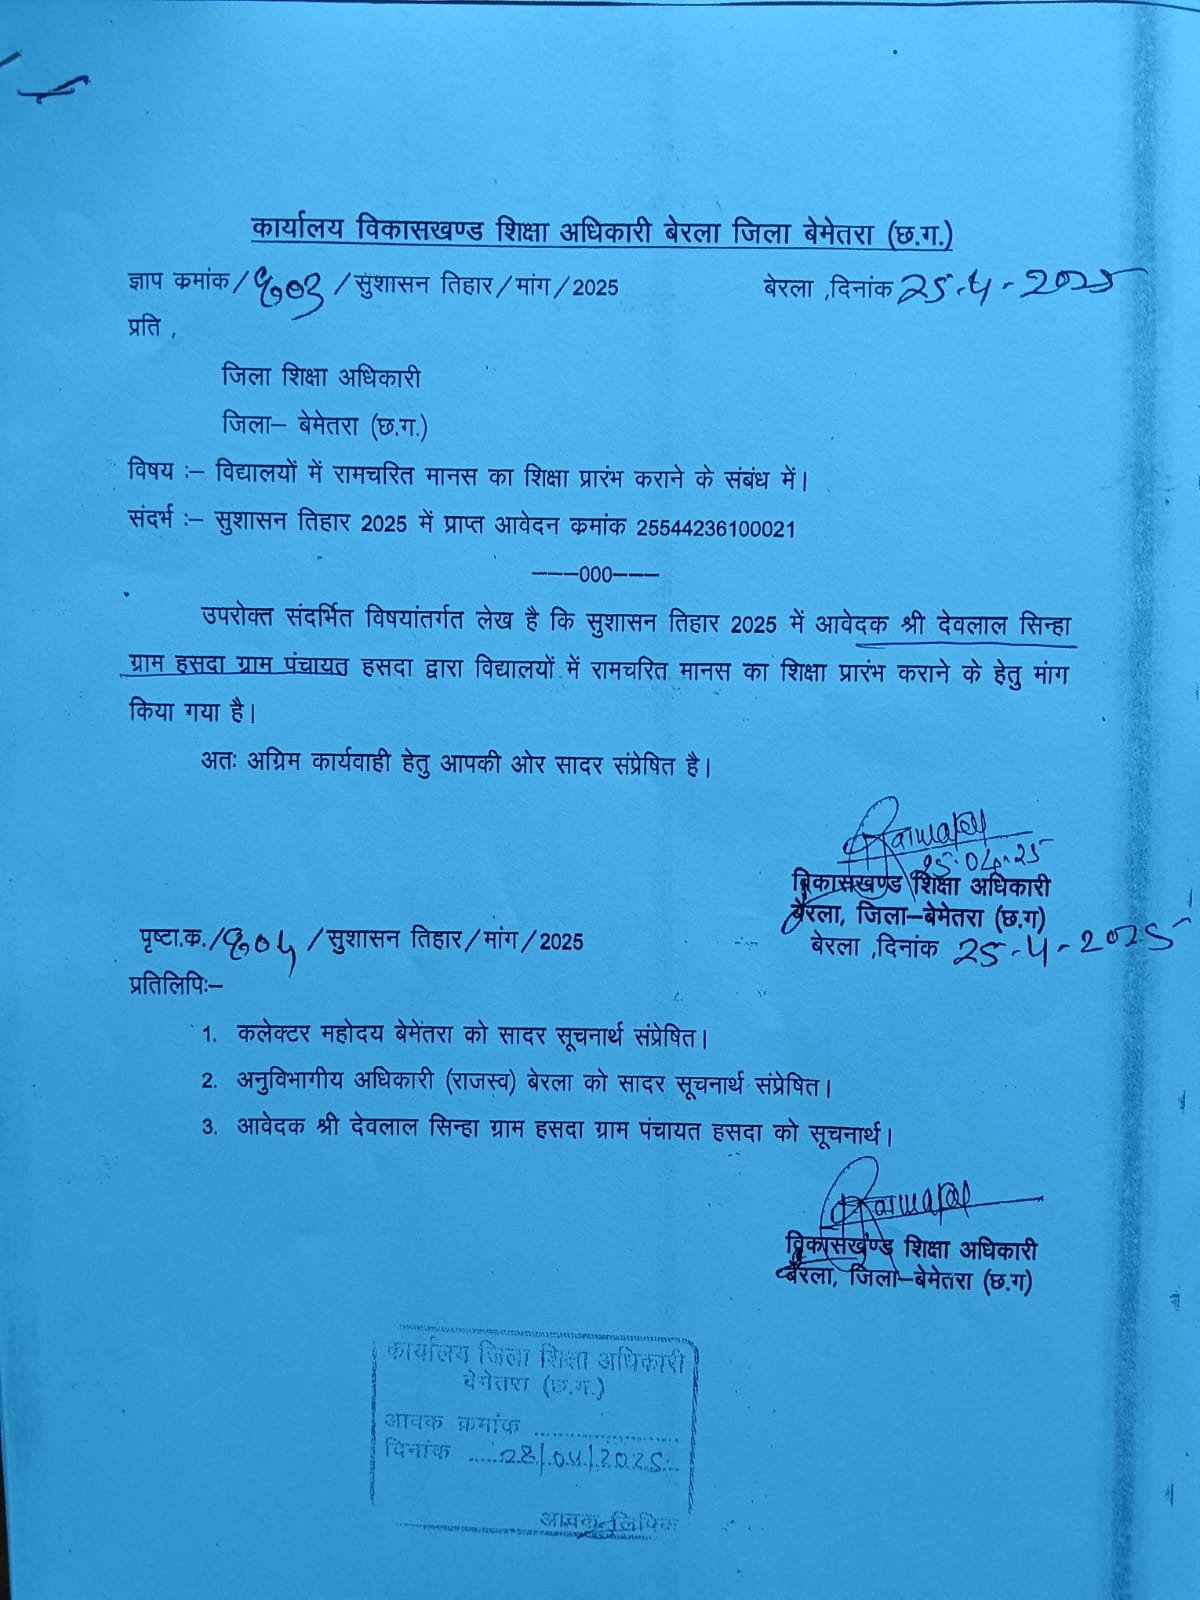 कार्यालय विकासखण्ड शिक्षा अधिकारी बेरला जिला बेमेतरा (छ.ग.)
ज्ञाप कमांक/ १०३ /सुशासन तिहार/मांग/2025 बेरला ,दिनांक 25-4-2025
प्रति ,
जिला शिक्षा अधिकारी
जिला– बेमेतरा (छ.ग.)
विषय :– विद्यालयों में रामचरित मानस का शिक्षा प्रारंभ कराने के संबंध में।
संदर्भ :– सुशासन तिहार 2025 में प्राप्त आवेदन कमांक 25544236100021
–––000–––
उपरोक्त संदर्भित विषयांतर्गत लेख है कि सुशासन तिहार 2025 में आवेदक श्री देवलाल सिन्हा
ग्राम हसदा ग्राम पंचायत हसदा द्वारा विद्यालयों में रामचरित मानस का शिक्षा प्रारंभ कराने के हेतु मांग
किया गया है।
अतः अग्रिम कार्यवाही हेतु आपकी ओर सादर संप्रेषित है।
25.04.25
विकासखण्ड शिक्षा अधिकारी
बेरला, जिला–बेमेतरा (छ.ग)
पृष्टा.क./ १०४ /सुशासन तिहार/मांग/2025 बेरला ,दिनांक 25-4-2025
प्रतिलिपिः–
1. कलेक्टर महोदय बेमेतरा को सादर सूचनार्थ संप्रेषित।
2. अनुविभागीय अधिकारी (राजस्व) बेरला को सादर सूचनार्थ संप्रेषित।
3. आवेदक श्री देवलाल सिन्हा ग्राम हसदा ग्राम पंचायत हसदा को सूचनार्थ।
विकासखण्ड शिक्षा अधिकारी
बेरला, जिला–बेमेतरा (छ.ग)
कार्यालय जिला शिक्षा अधिकारी
बेमेतरा (छ.ग.)
आवक क्रमांक
दिनांक 28/04/2025
आवक लिपिक